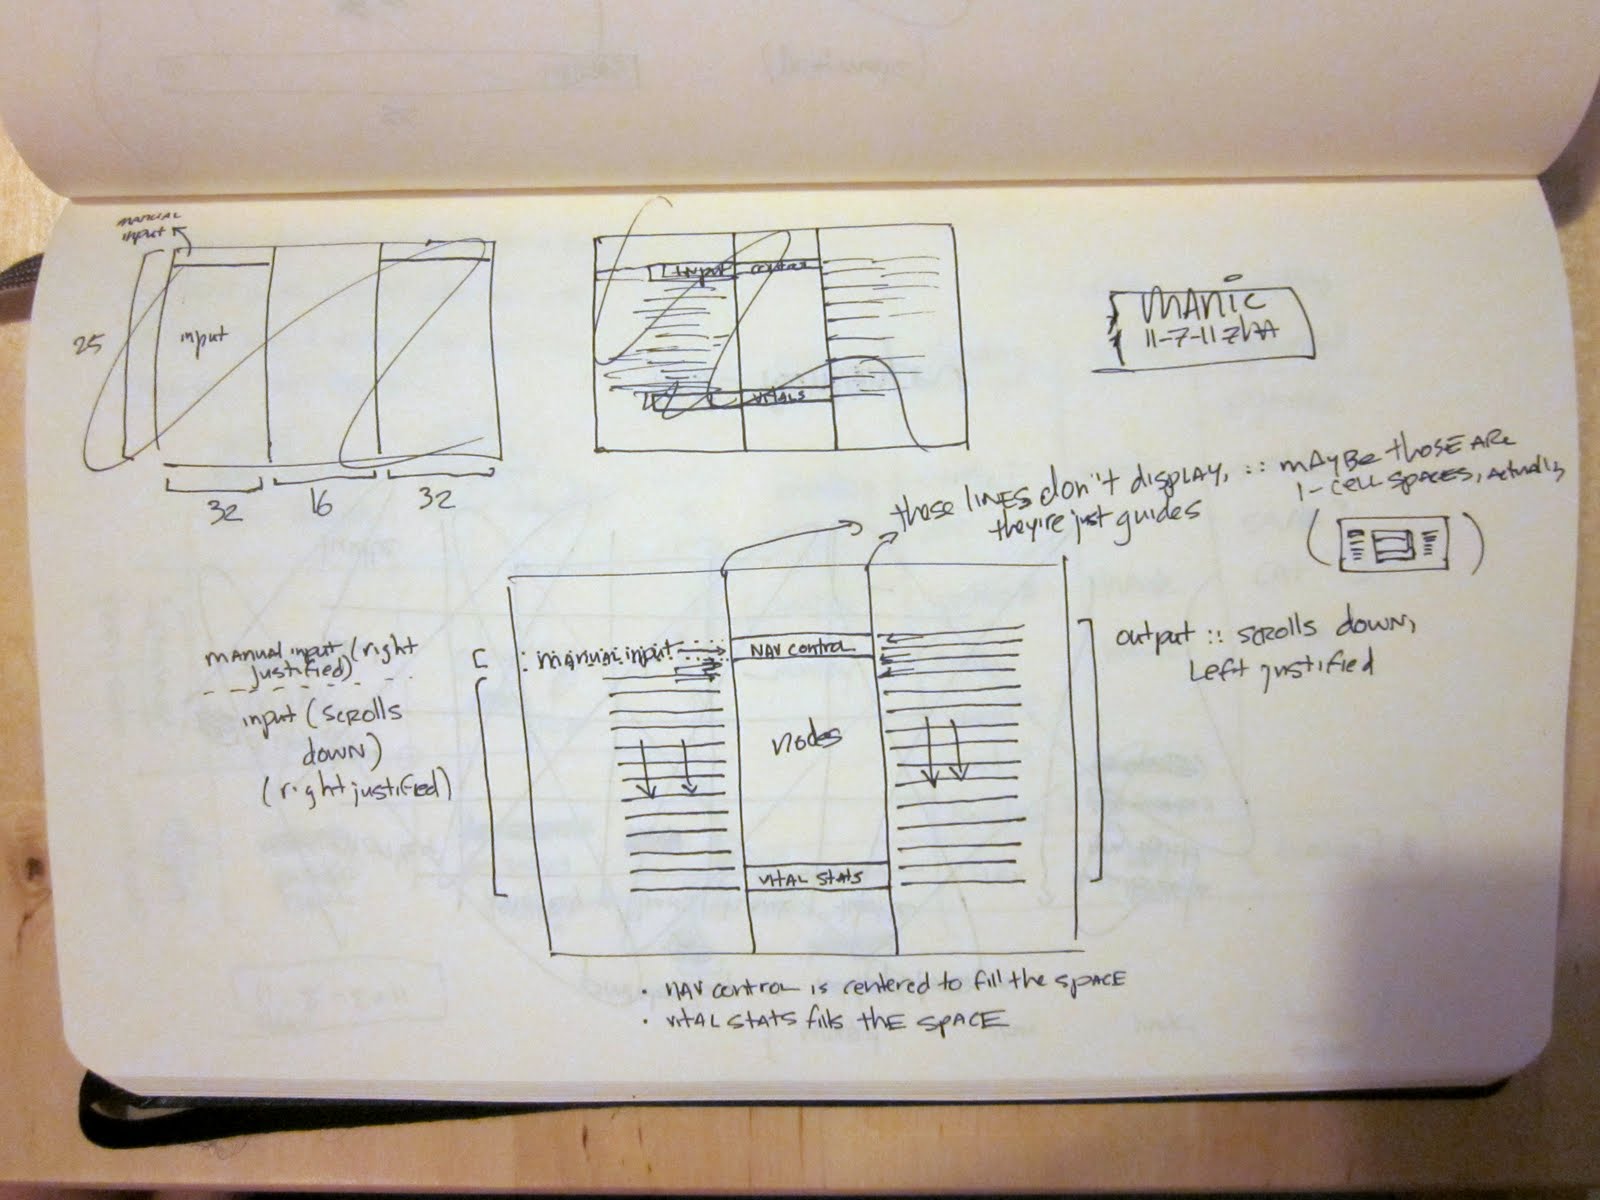 manual
input
25
input
32
16
32
input
control
vitals
manic
11-7-11
those lines don't display,
they're just guides
:: maybe those are
1-cell spaces, actually
manual input (right
justified)
input (scrolls
down)
(right justified)
manual input
nav control
nodes
vital stats
output :: scrolls down,
left justified
• nav control is centered to fill the space
• vital stats fills the space